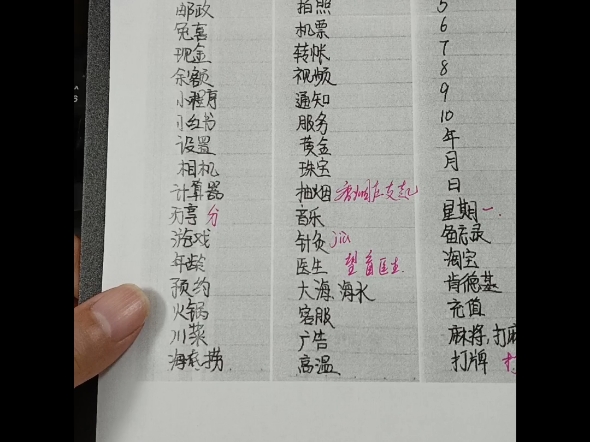 邮政
免喜
现金
余额
小程序
小红书
设置
相机
计算器
分享 分
游戏
年龄
预约
火锅
川菜
海底捞
拍照
机票
转帐
视频
通知
服务
黄金
珠宝
抽烟
音乐
针灸 jiu
医生
大海 海水
客服
广告
高温
5
6
7
8
9
10
年
月
日
星期一
备忘录
淘宝
肯德基
充值
麻将, 打麻
打牌 打